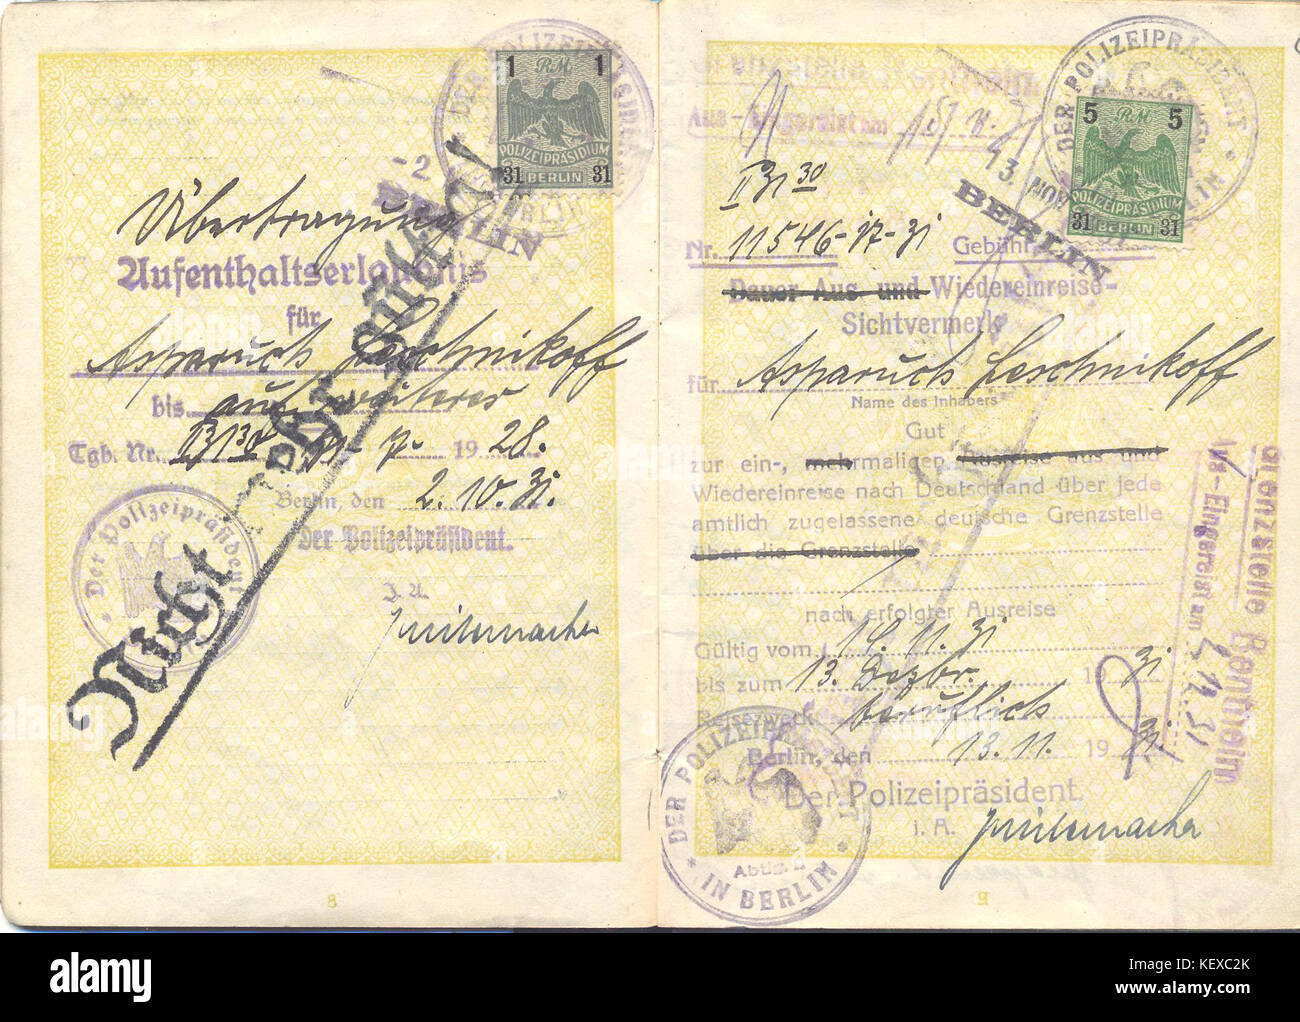 DER POLIZEIPRÄSIDENT
1 RM 1
POLIZEIPRÄSIDIUM
31 BERLIN 31
-2
BERLIN
Übertragung
Aufenthaltserlaubnis
für
Asparuch Leschnikoff
bis auf weiteres
Tgb. Nr. 19 28.
Berlin, den 2.10.31.
Der Polizeipräsident.
I. A.
Der Polizeipräsident
Nicht mehr gültig!
8
DER POLIZEIPRÄSIDENT IN BERLIN
5 RM 5
POLIZEIPRÄSIDIUM
31 BERLIN 31
Aus - Eingereist am
13. NOV
BERLIN
II 31 30
Nr. 11546-17-31 Gebühr
Dauer Aus und Wiedereinreise-
Sichtvermerk
für Asparuch Leschnikoff
Name des Inhabers
Gut
zur ein-, mehrmaligen Ausreise aus und
Wiedereinreise nach Deutschland über jede
amtlich zugelassene deutsche Grenzstelle
über die Grenzstelle
nach erfolgter Ausreise
Gültig vom 14.11.31
bis zum 13. Dezbr. 19 31
Reisezweck beruflich
Berlin, den 13.11. 19 31
Der Polizeipräsident.
i. A.
DER POLIZEIPRÄSIDENT
IN BERLIN
Grenzstelle Bentheim
Eingereist am
9
alamy
Image ID: KEXC2K
www.alamy.com